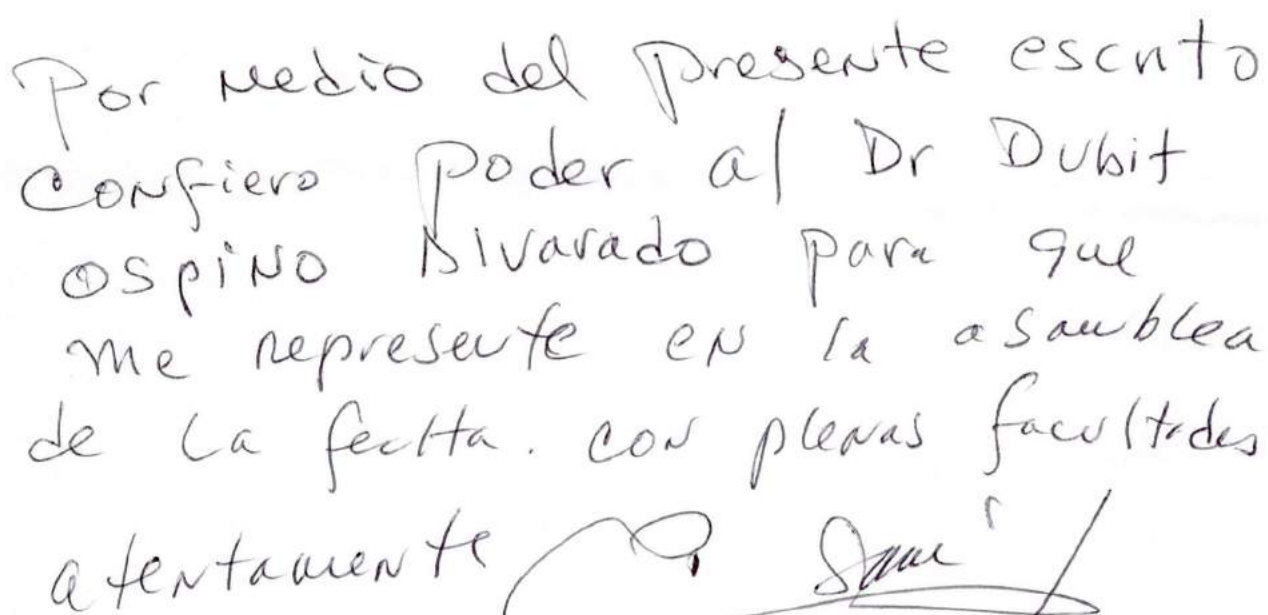 Por medio del presente escrito
confiero poder al Dr Dubit
OSPINO Alvarado para que
me represente en la asamblea
de la fecha. con plenas facultades
atentamente